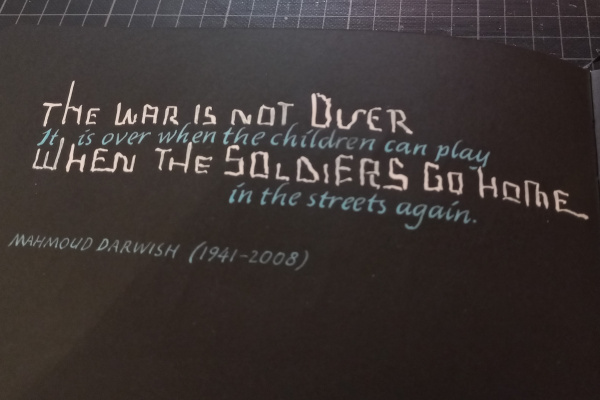 THE WAR IS NOT OVER
It is over when the children can play
WHEN THE SOLDIERS GO HOME
in the streets again.
MAHMOUD DARWISH (1941-2008)